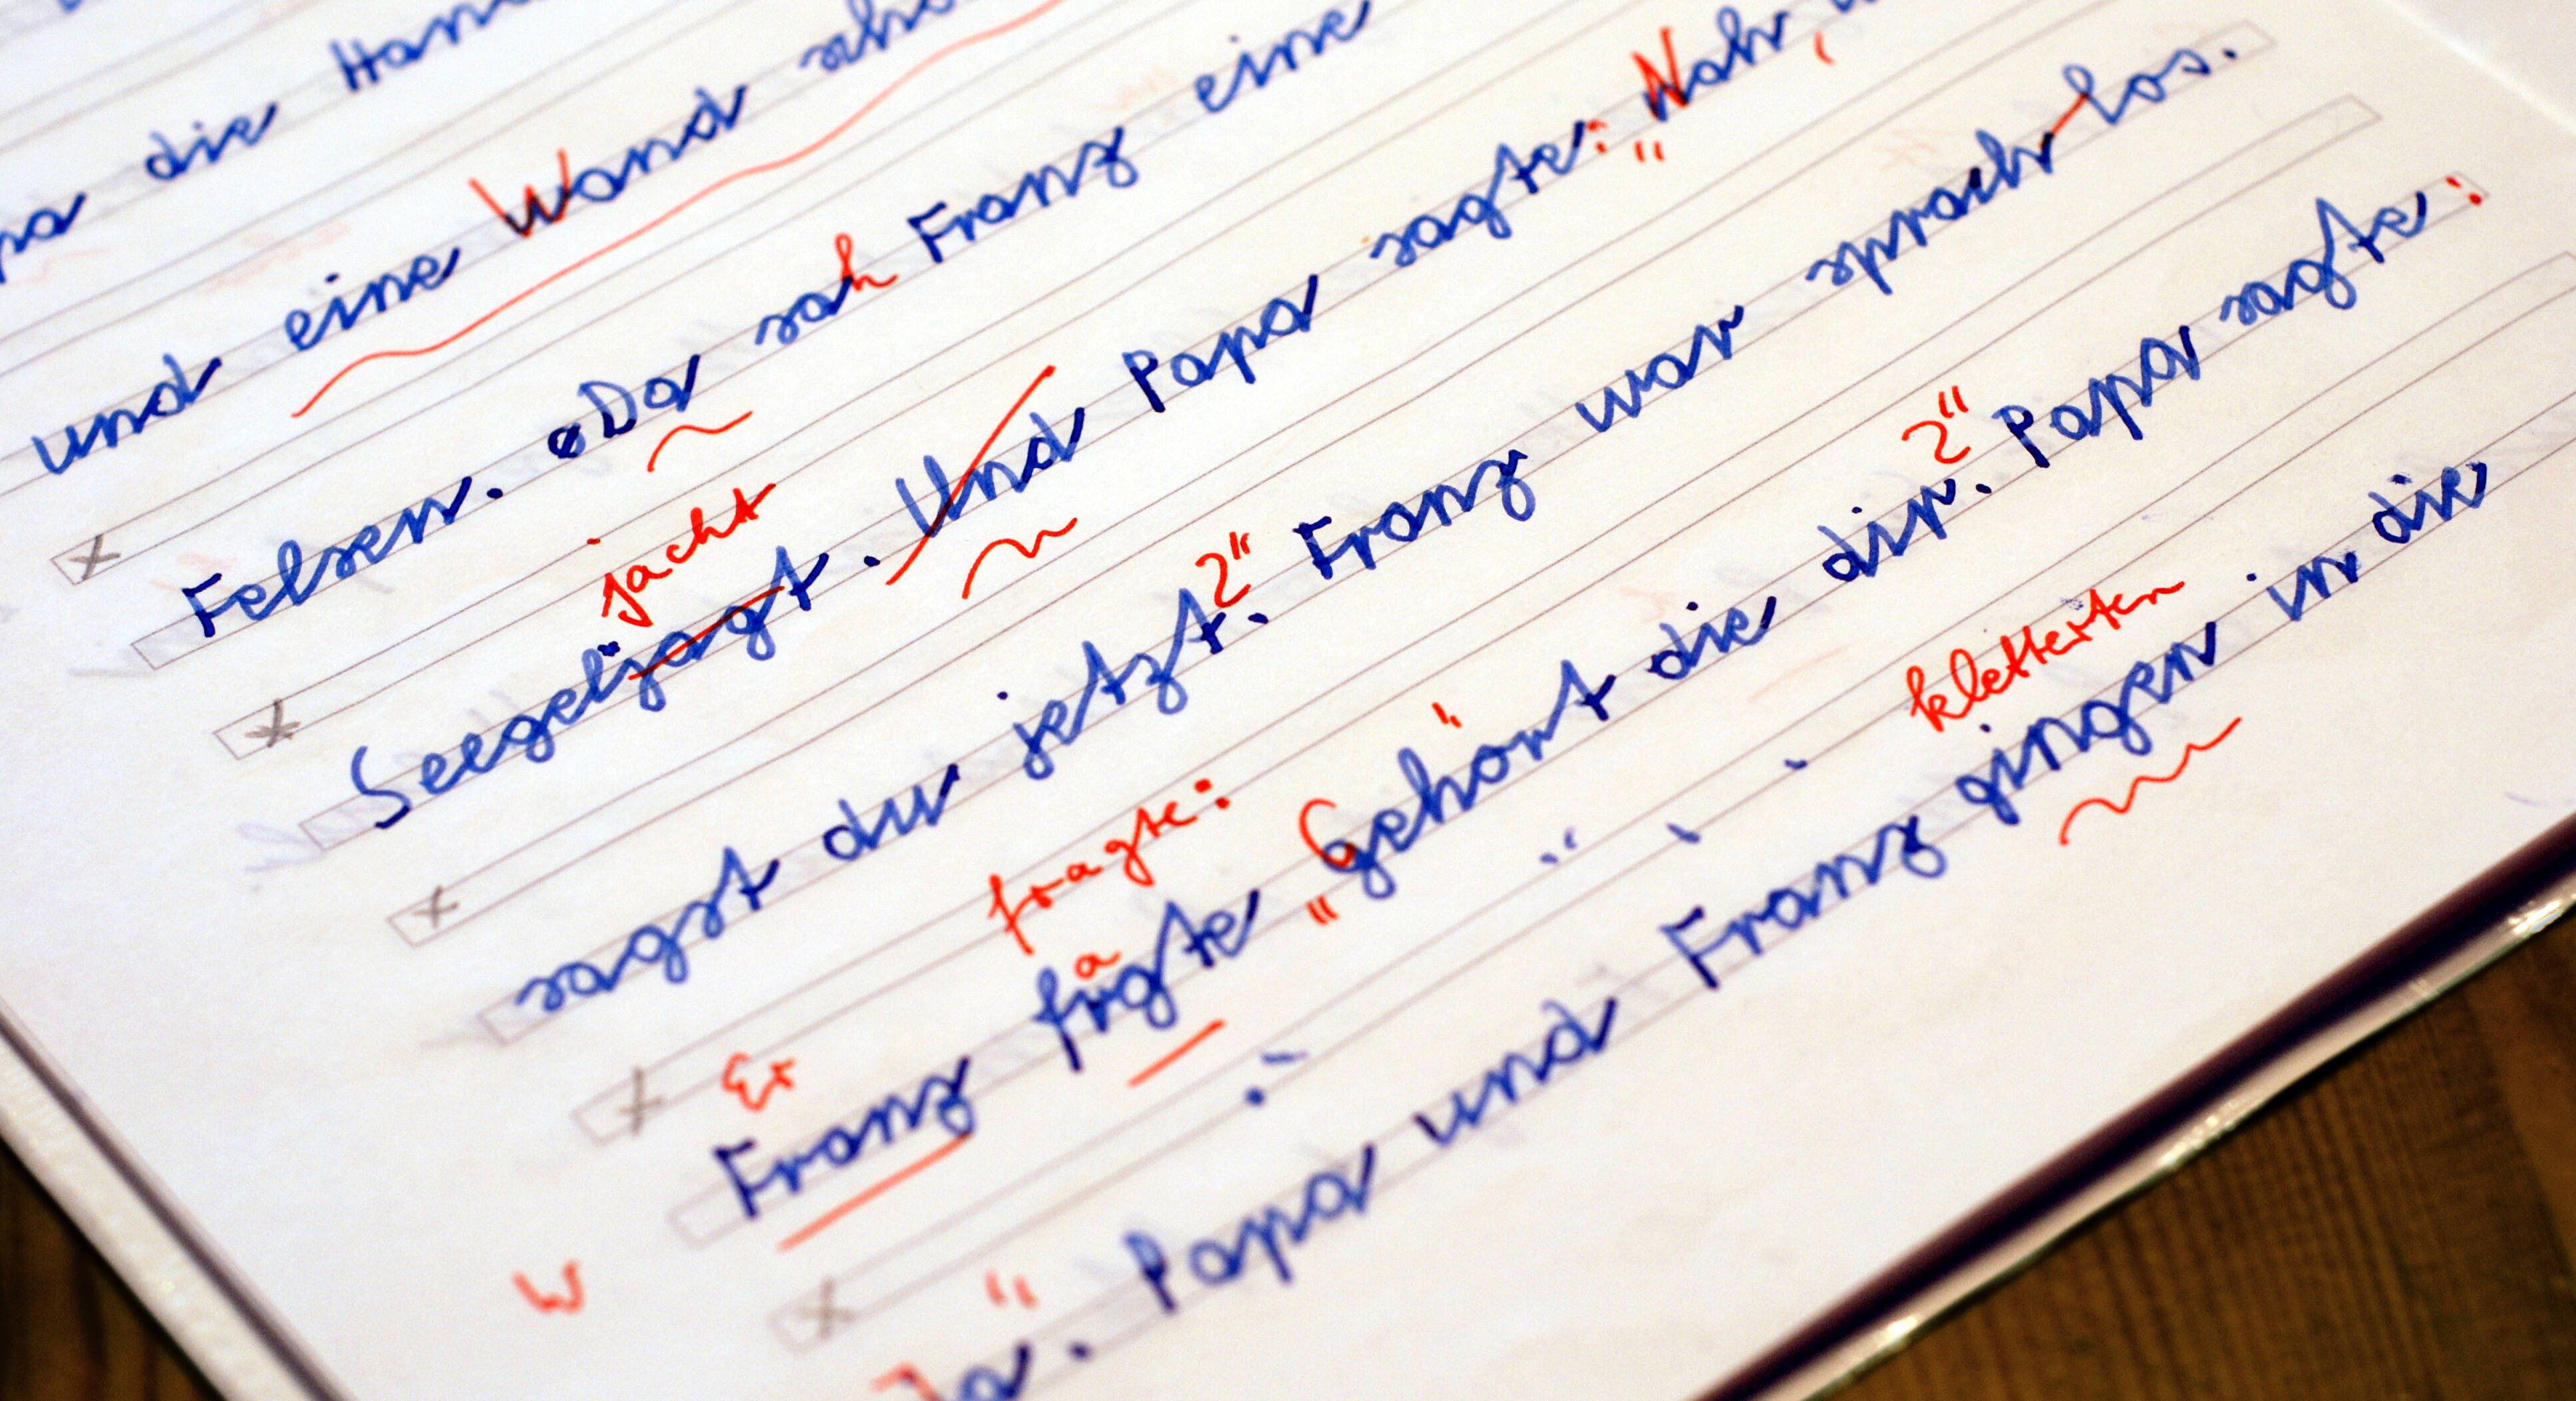 die
und eine Wand
Felsen. Da sah Franz eine
jacht
Seegeljagt. Und Papa sagte: "Nah,
sagst du jetzt?" Franz war sprachlos.
Er fragte:
Franz frgte "Gehört die dir." Papa sagte:
a
kletterten
Ja." Papa und Franz gingen in die
W